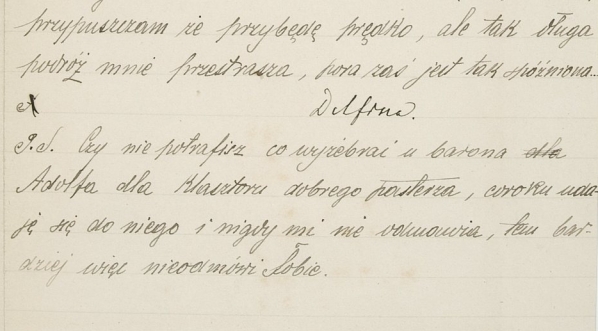 przypuszczam że przybędę prędko, ale tak długa
podróż mnie przestrasza, pora zaś jest tak spóźniona...
Delfina.
P.S. Czy nie potrafisz co wyżebrać u barona dla
Adolfa dla klasztoru dobrego pasterza, coroku uda-
ję się do niego i nigdy mi nie odmawia, tem bar-
dziej więc nieodmówi Tobie.